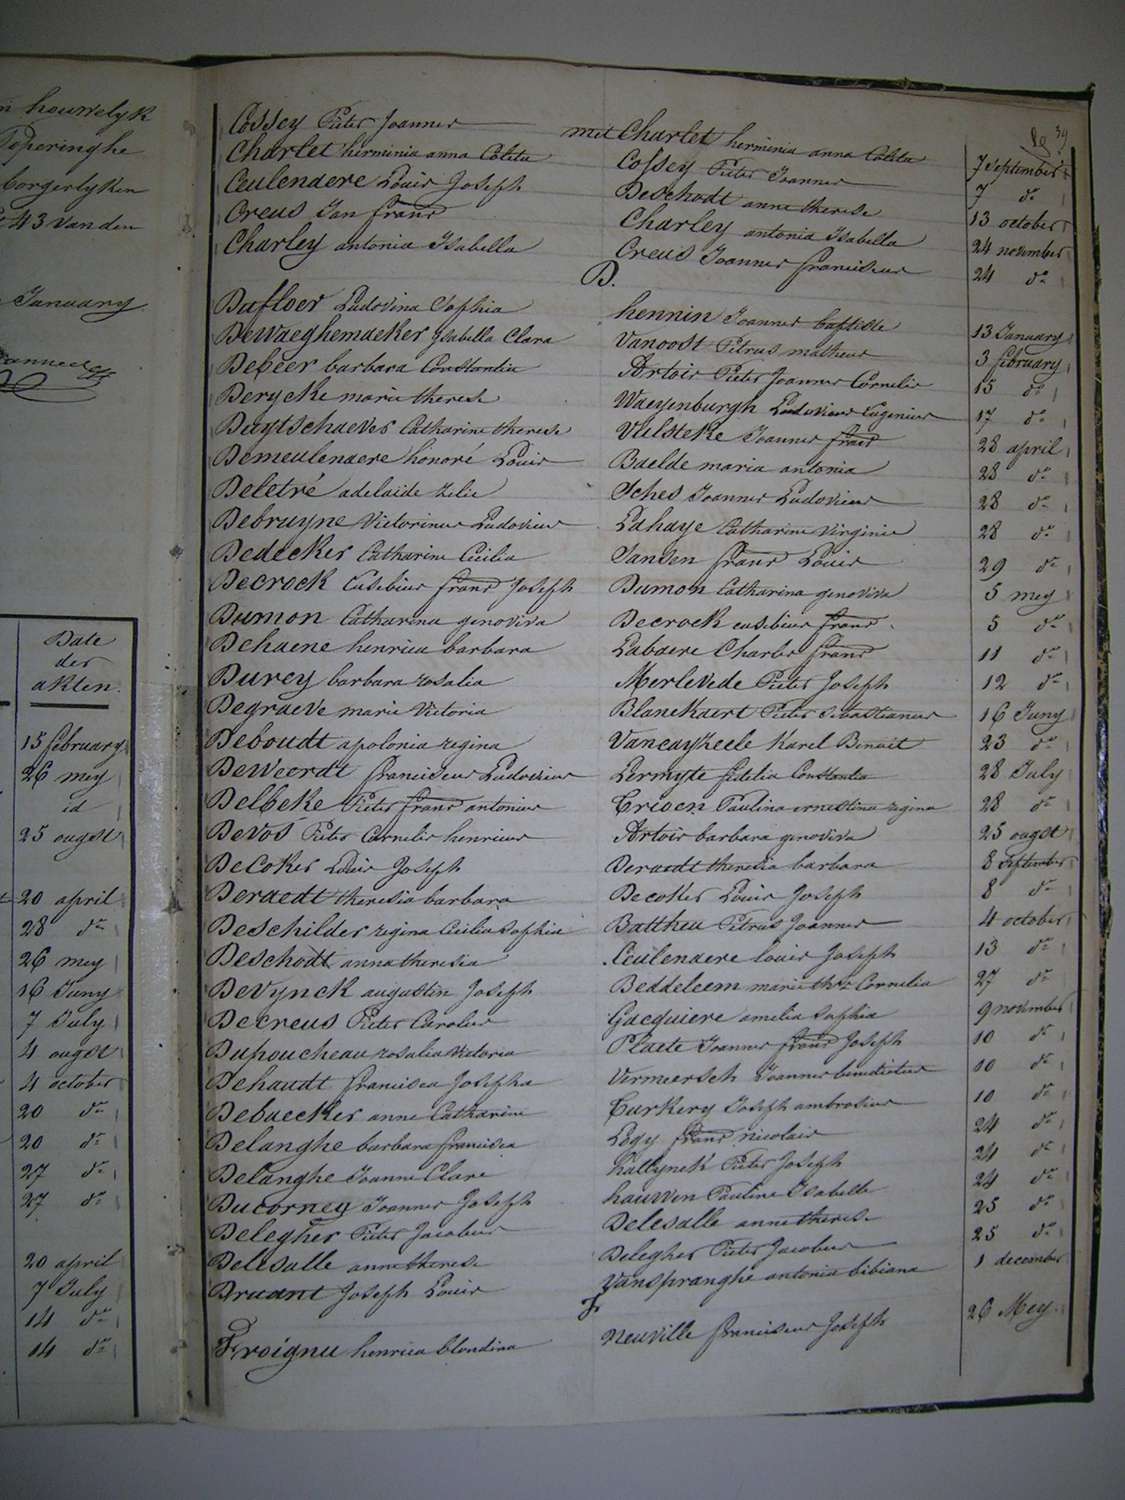 houwelyk
Poperinghe
borgerlyken
43 van den
January
Date
der
akten.
15 february
26 mey
id
25 ougst
20 april
28 do
26 mey
16 Juny
7 July
4 ougst
4 october
20 do
20 do
27 do
27 do
20 april
7 July
14 do
14 do
39
Cossey Pieter Joannes met Charlet herminia anna Coleta 7 September
Charlet herminia anna Coleta Cossey Pieter Joannes 7 do
Ceulenaere Louis Joseph Deschodt anne therese 13 october
Creus Jan frans Charley antonia Isabella 24 november
Charley antonia Isabella Creus Joannes franciscus 24 do
D.
Dafloer Ludovina Sophia hennin Joannes baptiste 13 January
DeWaeghemaeker Isabella Clara Vanoost Petrus matheus 3 february
Depeer barbara Constantia Artois Pieter Joannes Cornelis 15 do
Derycke marie therese Waeyenburgh Ludovicus Eugenius 17 do
Duytschaever Catharine therese Vulsteke Joannes frans 28 april
Demeulenaere honoré Louis Baelde maria antonia 28 do
Deletré adelaide zelie Iches Joannes Ludovicus 28 do
Debruyne Victorinus Ludovicus Lahaye Catharine Virginie 28 do
Dedecker Catharine Cecilia Jansen frans Louis 29 do
Decrock Eusebius frans Joseph Dumon Catharina genoviva 5 mey
Dumon Catharina genoviva Decrock eusebius frans 5 do
Dehaene henrica barbara Labaere Charles frans 11 do
Durey barbara rosalia Merlevede Pieter Joseph 12 do
Degraeve marie Victoria Blanckaert Pieter Sebastianus 16 Juny
Deboudt apolonia regina Vancayzeele Karel Benoit 23 do
DeWeerdt franciscus Ludovicus Lermyte fidelia Constantia 28 July
Delbeke Pieter frans antonius Crioen Paulina ernestina regina 28 do
DeVos Pieter Cornelis henricus Artois barbara genoviva 25 ougst
DeCoker Louis Joseph Deraedt theresia barbara 8 September
Deraedt theresia barbara Decoker Louis Joseph 8 do
Deschilder regina Cecilia Sophia Battheu Petrus Joannes 4 october
Deschodt anna theresia Ceulenaere louis Joseph 13 do
DeVynck augustin Joseph Beddeleem marie ther Cornelia 27 do
Decreus Pieter Carolus Gacquiere amelia Sophia 9 november
Dupoucheau rosalia Victoria Plaete Joannes frans Joseph 10 do
Dehaudt francisca Josepha Vermeersch Joannes benedictus 10 do
Debaecker anne Catharine Curkery Joseph ambrosius 10 do
Delanghe barbara francisca Logy frans nicolais 24 do
Delanghe Joanne Clare Kallynck Pieter Joseph 24 do
Ducorney Joannes Joseph hauwen Pauline Isabelle 24 do
Delegher Pieter Jacobus Delesalle anne therese 25 do
Delesalle anne therese Delegher Pieter Jacobus 25 do
Druant Joseph Louis Vanspranghe antonia bibiana 1 december
F
Froignu henrica blondina Neuville franciscus Joseph 26 Mey